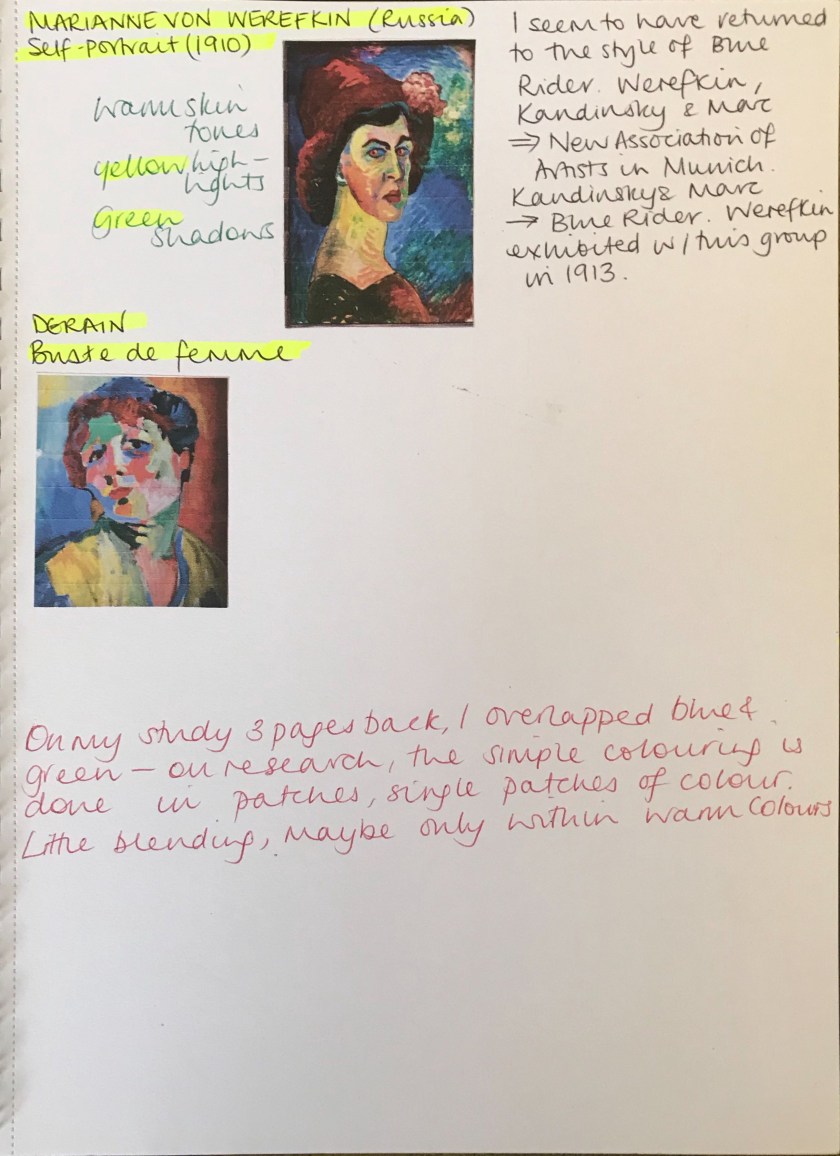 MARIANNE VON WEREFKIN (Russia)
Self-portrait (1910)
warm skin
tones
yellow high-
lights
Green
shadows
I seem to have returned
to the style of Blue
Rider. Werefkin,
Kandinsky & Marc
⇒ New Association of
Artists in Munich.
Kandinsky & Marc
→ Blue Rider. Werefkin
exhibited w/ this group
in 1913.
DERAIN
Buste de femme
On my study 3 pages back, I overlapped blue &
green – on research, the simple colouring is
done in patches, single patches of colour.
Little blending, maybe only within warm colours